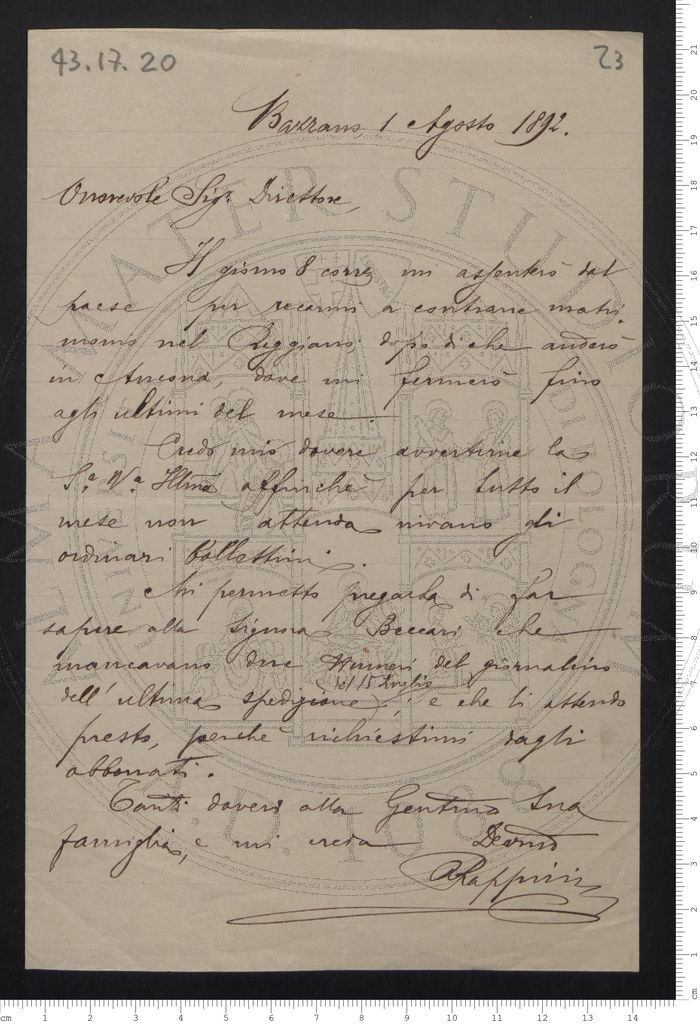 43.17.20
23
Bazzano, 1 Agosto 1892.
Onorevole Sigr Direttore,
Il giorno 8 corre mi assenterò dal
paese per recarmi a contrarre matri-
monio nel Reggiano dopo di che anderò
in Ancona, dove mi fermerò fino
agli ultimi del mese.
Credo mio dovere avvertirne la
S.a V.a Illma affinchè per tutto il
mese non attenda nivano gli
ordinari bollettini.
Mi permetto pregarla di far
sapere alla Signora Beccari che
mancavano due Numeri del giornalino
del 15 Luglio
dell'ultima spedizione, e che li attendo
presto, perchè richiestimi dagli
abbonati.
Tanti doveri alla Gentma Sua
famiglia, e mi creda Devmo
Rappini
ALMA MATER STUDIORUM
A.D. 1088